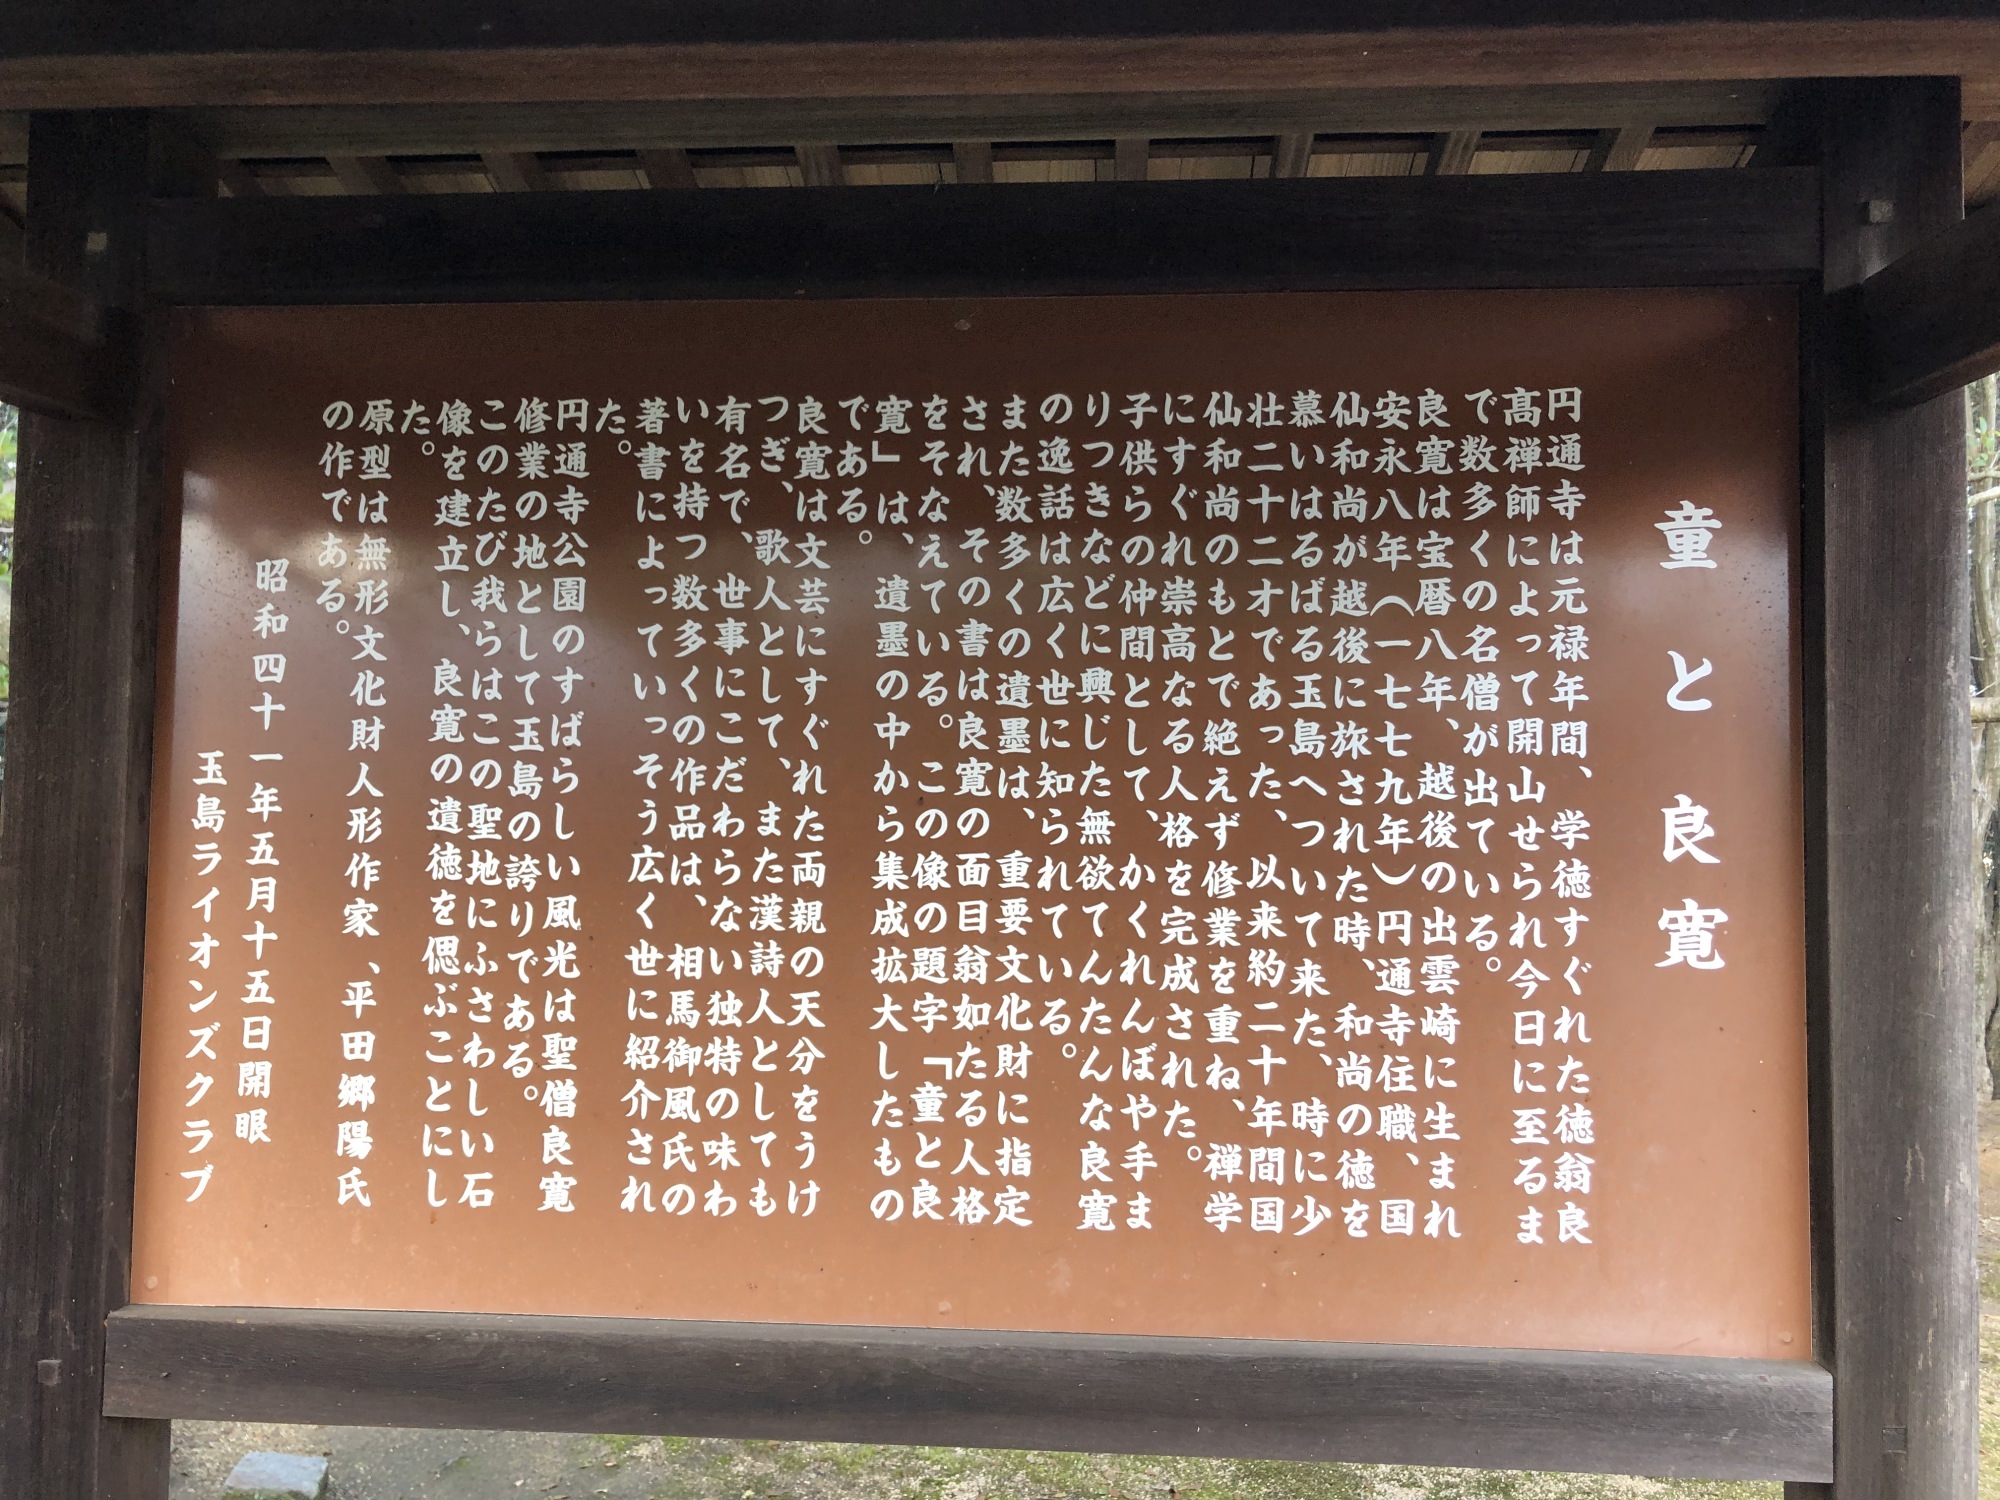 童と良寛
円通寺は元禄年間、学徳すぐれた徳翁良
高禅師によって開山せられ今日に至るま
で数多くの名僧が出ている。
良寛は宝暦八年、越後の出雲崎に生まれ
安永八年(一七七九年)円通寺住職、国
仙和尚が越後に旅された時、和尚の徳を
慕いはるばる玉島へついて来た、時に少
壮二十二才であった、以来約二十年間国
仙和尚のもとで絶えず修業を重ね、禅学
にすぐれ崇高なる人格を完成された。
子供らの仲間として、かくれんぼや手ま
りつきなどに興じた無欲てんたんな良寛
の逸話は広く世に知られている。
また数多くの遺墨は、重要文化財に指定
され、その書は良寛の面目翁如たる人格
をそなえている。この像の題字「童と良
寛」は、遺墨の中から集成拡大したもの
である。
良寛は文芸にすぐれた両親の天分をうけ
つぎ、歌人として、また漢詩人としても
有名で、世事にこだわらない独特の味わ
いを持つ数多くの作品は、相馬御風氏の
著書によっていっそう広く世に紹介され
た。
円通寺公園のすばらしい風光は聖僧良寛
修業の地として玉島の誇りである。
このたび我らはこの聖地にふさわしい石
像を建立し、良寛の遺徳を偲ぶことにし
た。
原型は無形文化財人形作家、平田郷陽氏
の作である。
昭和四十一年五月十五日開眼
玉島ライオンズクラブ